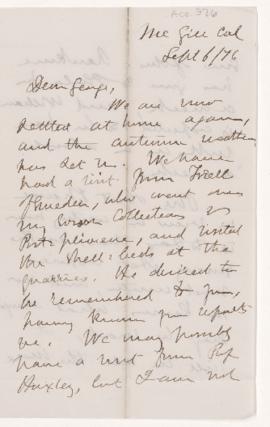 Acc. 376
McGill Col
Sept 6/76
Dear George,
We are now
settled at home again,
and the autumn weather
has set in. We have
had a visit from Torell
of Sweden, who went over
my Collections of
Post-pliocene, and visited
the shell-beds at the
quarries. He desired to
be remembered to you,
having known your reports
We may possibly
have a visit from Prof
Huxley, but I am not